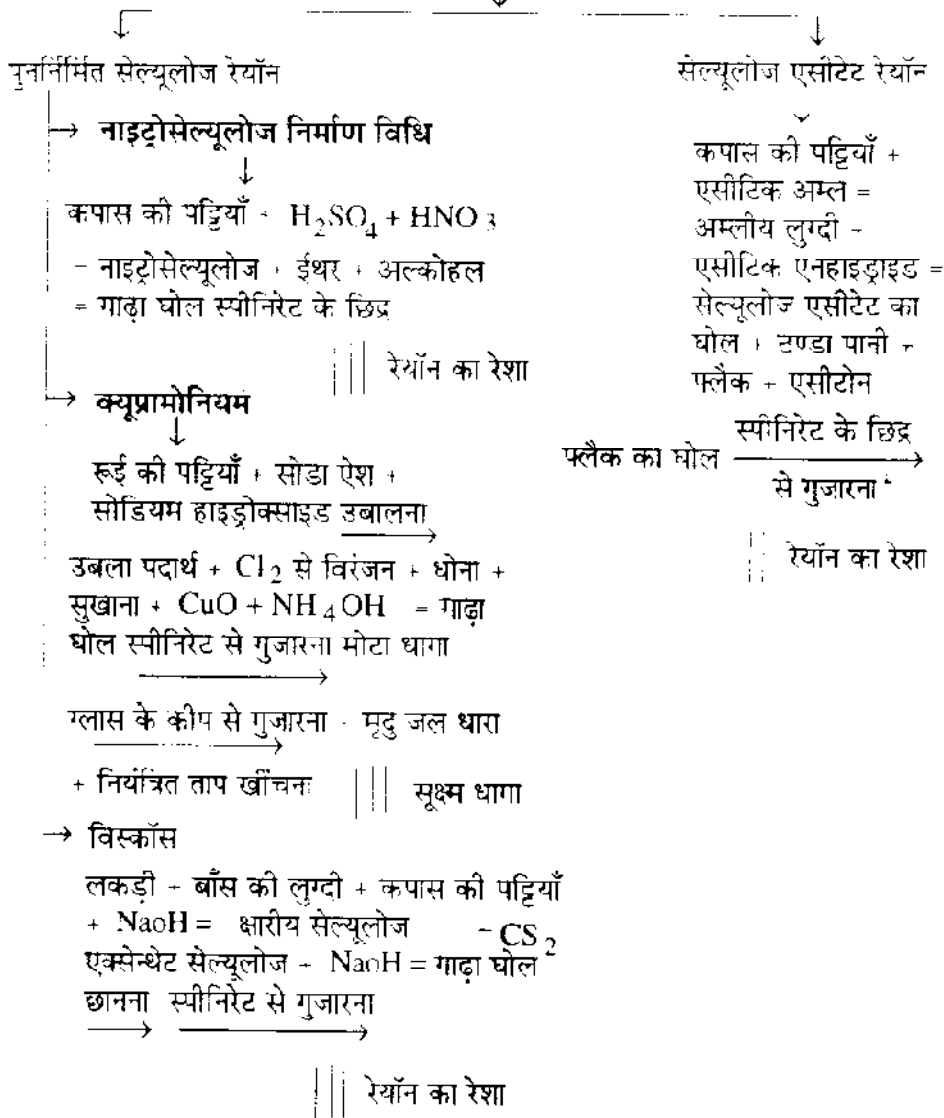 पुनर्निर्मित सेल्यूलोज रेयॉन
→ नाइट्रोसेल्यूलोज निर्माण विधि
कपास की पट्टियाँ + H₂SO₄ + HNO₃
- नाइट्रोसेल्यूलोज + ईथर + अल्कोहल
= गाढ़ा घोल स्पीनिरेट के छिद्र
रेयॉन का रेशा
→ क्यूप्रामोनियम
रूई की पट्टियाँ + सोडा ऐश +
सोडियम हाइड्रोक्साइड उबालना
उबला पदार्थ + Cl₂ से विरंजन + धोना +
सुखाना + CuO + NH₄OH = गाढ़ा
घोल स्पीनिरेट से गुजारना मोटा धागा
ग्लास के कीप से गुजारना - मृदु जल धारा
+ नियंत्रित ताप खींचना
सूक्ष्म धागा
→ विस्कॉस
लकड़ी - बाँस की लुग्दी + कपास की पट्टियाँ
+ NaoH = क्षारीय सेल्यूलोज - CS₂
एक्सेन्थेट सेल्यूलोज - NaoH = गाढ़ा घोल
छानना स्पीनिरेट से गुजारना
रेयॉन का रेशा
सेल्यूलोज एसीटेट रेयॉन
कपास की पट्टियाँ +
एसीटिक अम्ल =
अम्लीय लुग्दी -
एसीटिक एनहाइड्राइड =
सेल्यूलोज एसीटेट का
घोल + टण्डा पानी -
फ्लैक + एसीटोन
फ्लैक का घोल स्पीनिरेट के छिद्र
से गुजारना
रेयॉन का रेशा